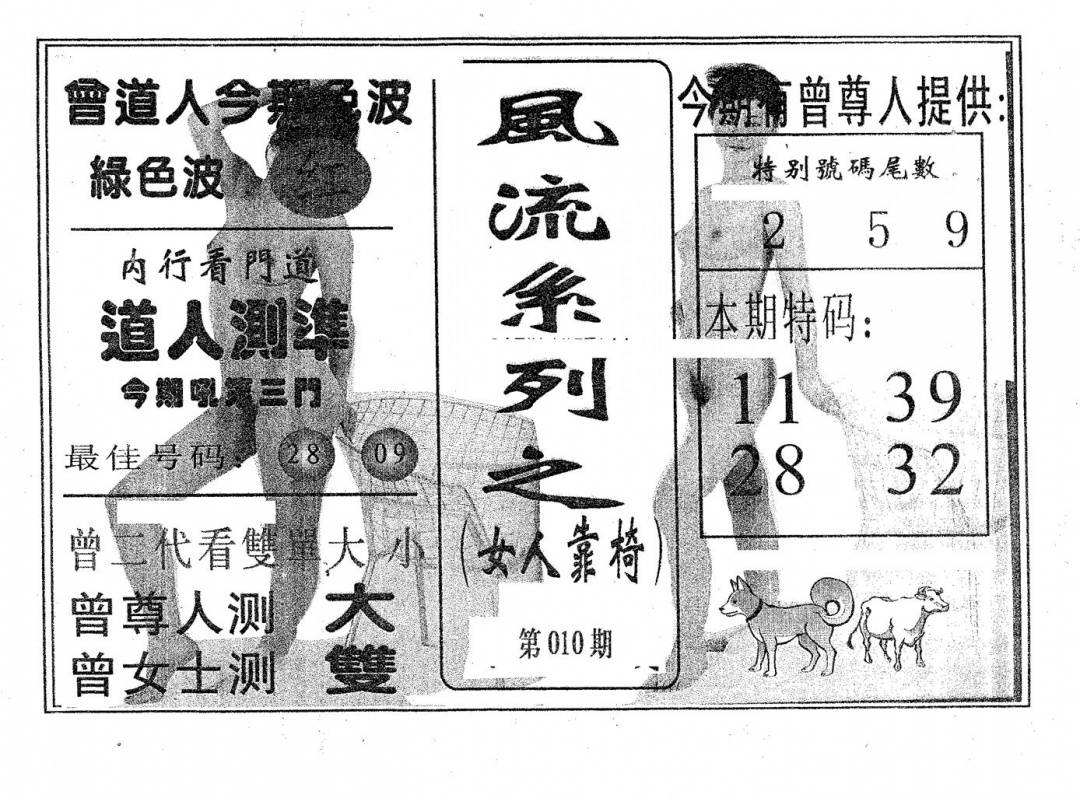 曾道人今期色波
綠色波 红
内行看門道
道人測準
今期吼實三門
最佳号码: 28 09
曾二代看雙單大小
曾尊人测 大
曾女士测 雙
風流系列之
(女人靠椅)
第010期
今期有曾尊人提供:
特别號碼尾數
2 5 9
本期特码:
11 39
28 32